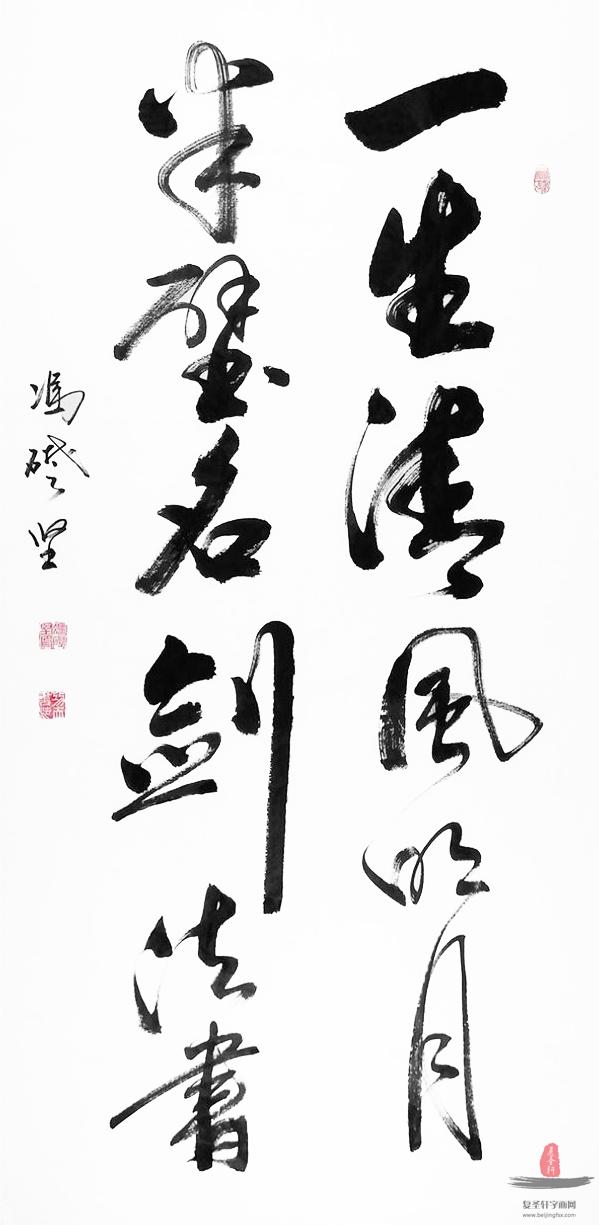 一生清風明月
半壁名剑法書
复圣轩字画网
www.beijingfsx.com